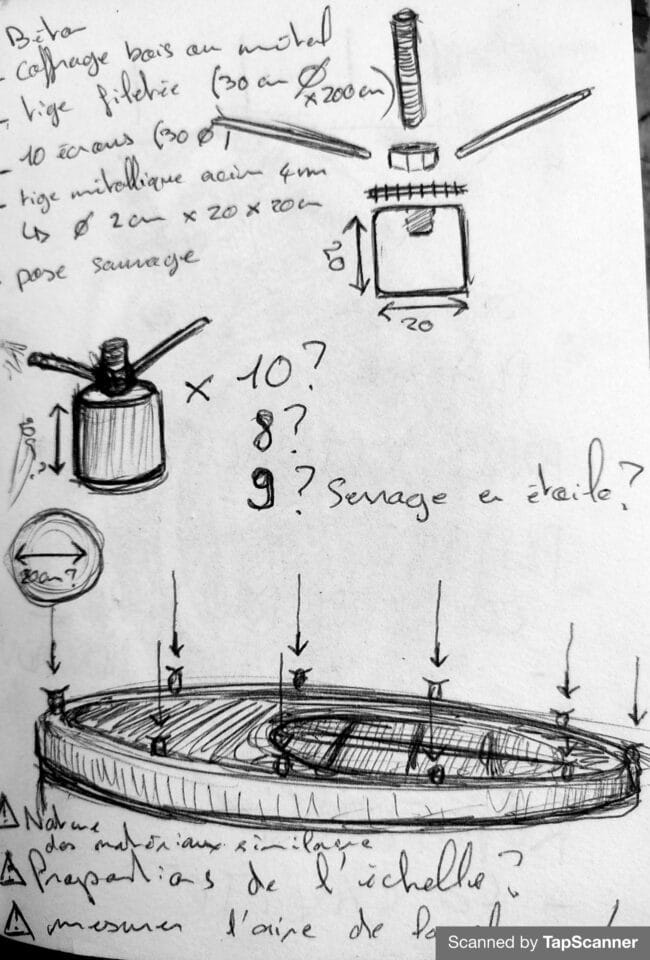 Béton
- coffrage bois ou métal
- tige filetée (30 cm Ø
x 200 cm)
- 10 écrous (30 Ø)
- tige métallique acier 4 mm
↳ Ø 2 cm x 20 x 20 cm
- pose sauvage
20
20
x 10?
8?
9? Serrage en étoile?
20 cm?
⚠ Nature
des matériaux similaire
⚠ Proportions de l'échelle?
⚠ mesurer l'aire de
Scanned by TapScanner